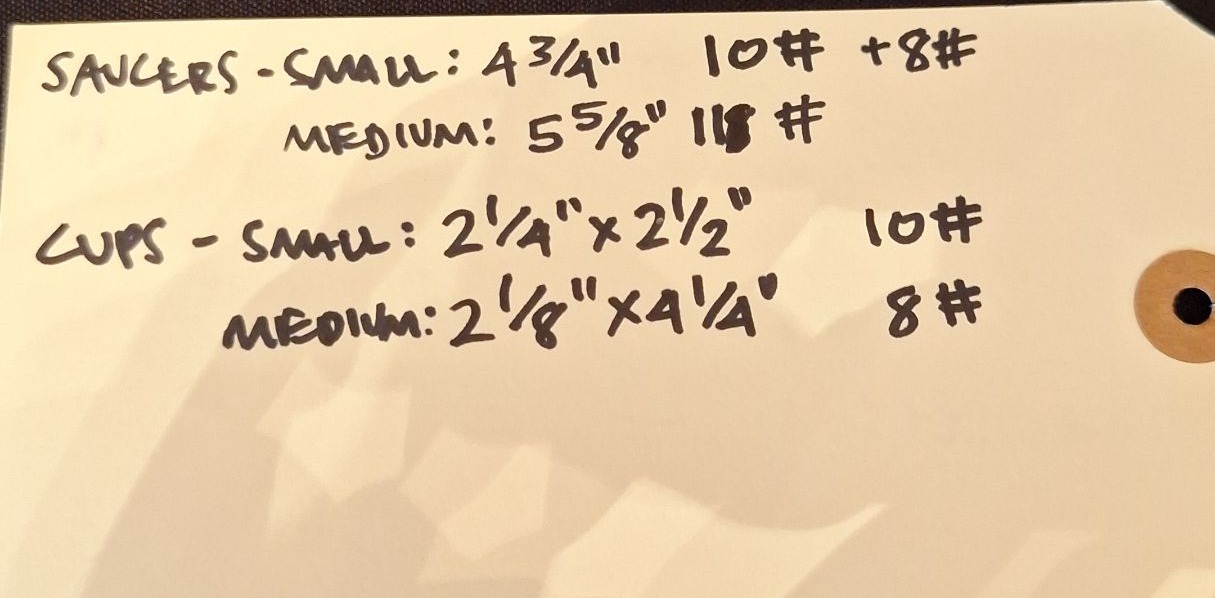 SAUCERS - SMALL: 4 3/4" 10# +8#
MEDIUM: 5 5/8" #
CUPS - SMALL: 2 1/4" x 2 1/2" 10#
MEDIUM: 2 1/8" x 4 1/4" 8#